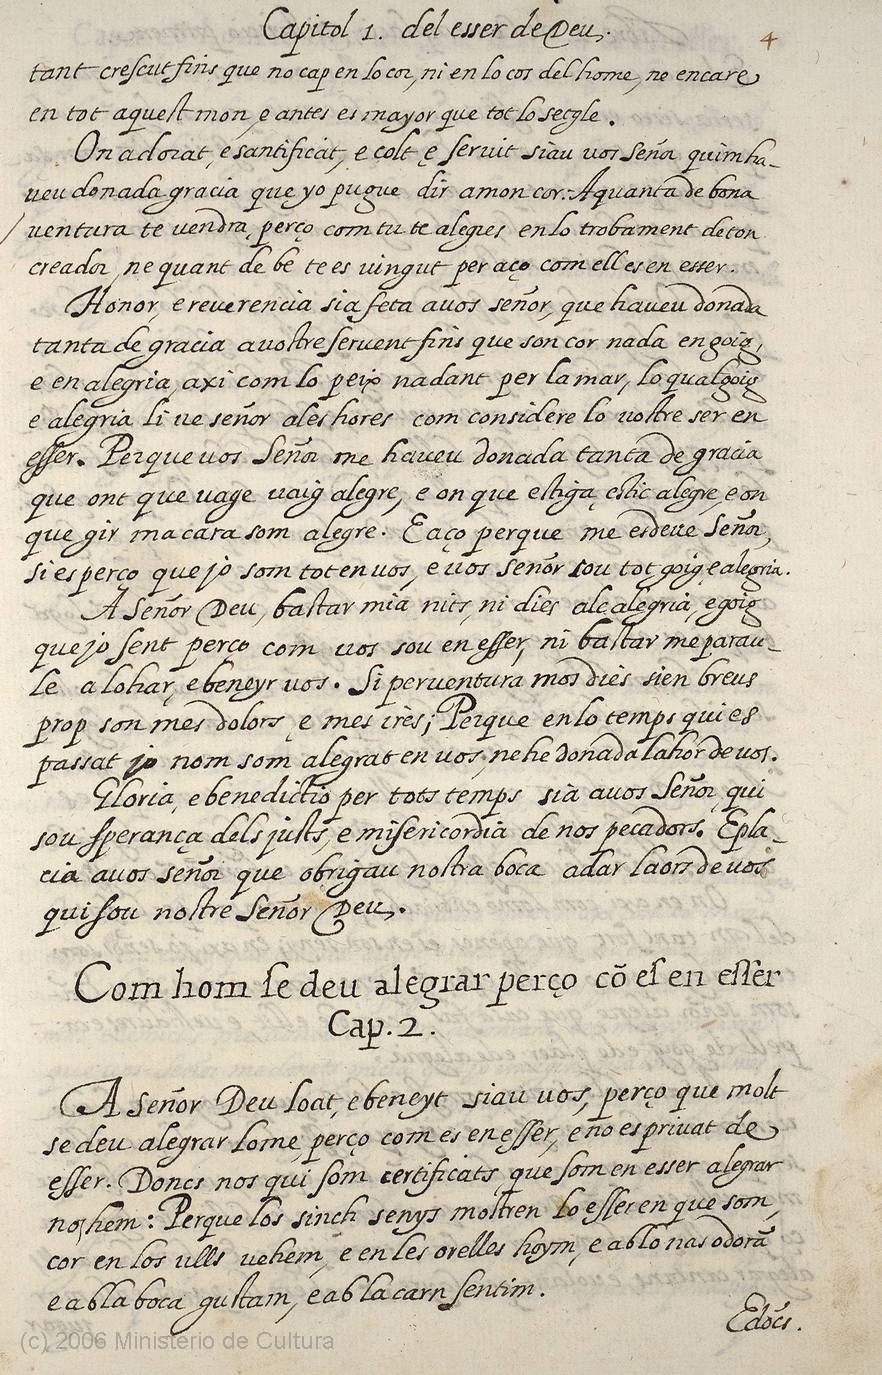 Capitol 1. del esser de Deu.
4
tant crescut fins que no cap en lo cor, ni en lo cos del home, ne encare
en tot aquest mon, e antes es mayor que tot lo secgle.
On adorat, e santificat, e colt e servit siau vos señor quim ha-
veu donada gracia que yo pugue dir a mon cor: A quanta de bona
ventura te vendra, perço com tu te alegres en lo trobament de ton
creador, ne quant de be te es vingut per aço com ell es en esser.
Honor, e reverencia sia feta a vos señor, que haveu donada
tanta de gracia a vostre servent fins que son cor nada en goig,
e en alegria, axi com lo peix nadant per la mar, lo qual goig
e alegria li ve señor a les hores com considere lo vostre ser en
esser. Perque vos Señor me haveu donada tanta de gracia
que ont que vage vaig alegre, e on que estiga estic alegre, e on
que gir ma cara som alegre. E aço perque me esdeve Señor,
si es perço que jo som tot en vos, e vos señor sou tot goig e alegria.
A Señor Deu, bastar mia nits, ni dies a le alegria, e goig
que jo sent perço com vos sou en esser, ni bastar me parau-
le a lohar, e beneyr vos. Si perventura mos dies sien breus
prop son mes dolors, e mes ires; Perque en lo temps qui es
passat jo nom som alegrat en vos, ne he donada lahor de vos.
Gloria, e benedictio per tots temps sia a vos Señor, qui
sou sperança dels justs, e misericordia de nos pecadors. E pla-
cia a vos señor que obrigau nostra boca a dar laors de vos
qui sou nostre Señor Deu.
Com hom se deu alegrar perço cõ es en esser
Cap. 2.
A Señor Deu loat, e beneyt siau vos, perço que molt
se deu alegrar lome, perço com es en esser, e no es privat de
esser. Doncs nos qui som certificats, que som en esser alegrar
nos hem: Perque los sinch senys mostren lo esser en que som,
cor en los ulls vehem, e en les orelles hoym, e ab lo nas odorã
e ab la boca gustam, e ab la carn sentim.
Edócs.
(c) 2006 Ministerio de Cultura